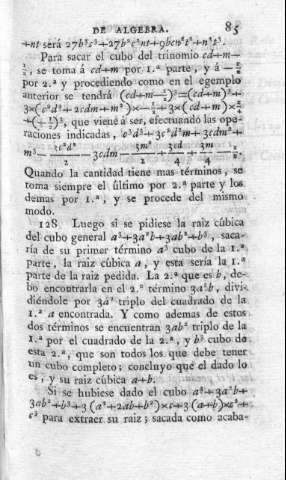 DE ALGEBRA. 85
+nt será 27b³c³+27b²c²nt+9bcn²t²+n³t³.
Para sacar el cubo del trinomio cd+m—
½, se toma á cd+m por 1.ª parte, y á —½
por 2.ª y procediendo como en el egemplo
anterior se tendrá (cd+m—½)³=(cd+m)³+
3×(c²d²+2cdm+m²)×—½+3×(cd+m)×¼
+(—½)³, que viene á ser, efectuando las ope-
raciones indicadas, c³d³+3c²d²m+3cdm²+
m³—3c²d²/2—3cdm—3m²/2+3cd/4+3m/4—
Quando la cantidad tiene mas términos, se
toma siempre el último por 2.ª parte y los
demas por 1.ª, y se procede del mismo
modo.
128. Luego si se pidiese la raiz cúbica
del cubo general a³+3a²b+3ab²+b³, saca-
ría de su primer término a³ cubo de la 1.ª
parte, la raiz cúbica a, y esta sería la 1.ª
parte de la raiz pedida. La 2.ª que es b, de-
bo encontrarla en el 2.º término 3a²b, divi-
diéndole por 3a² triplo del cuadrado de la
1.ª a encontrada. Y como ademas de estos
dos términos se encuentran 3ab² triplo de la
1.ª por el cuadrado de la 2.ª, y b³ cubo de
esta 2.ª, que son todos los que debe tener
un cubo completo; concluyo que el dado lo
es, y su raiz cúbica a+b.
Si se hubiese dado el cubo a³+3a²b+
3ab²+b³+3(a²+2ab+b²)×c+3(a+b)×c²+
c³ para extraer su raiz; sacada como acaba-